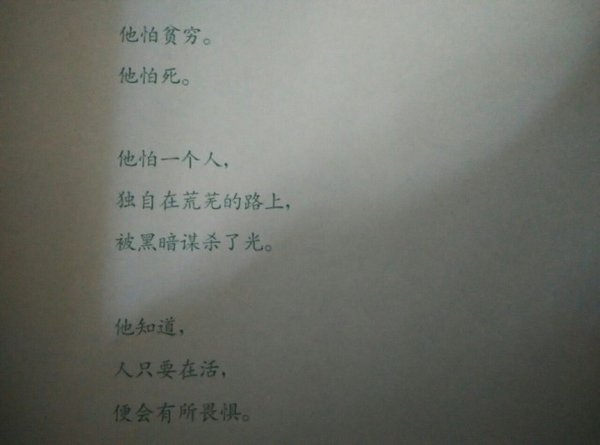 他怕贫穷。
他怕死。
他怕一个人，
独自在荒芜的路上，
被黑暗谋杀了光。
他知道，
人只要在活，
便会有所畏惧。